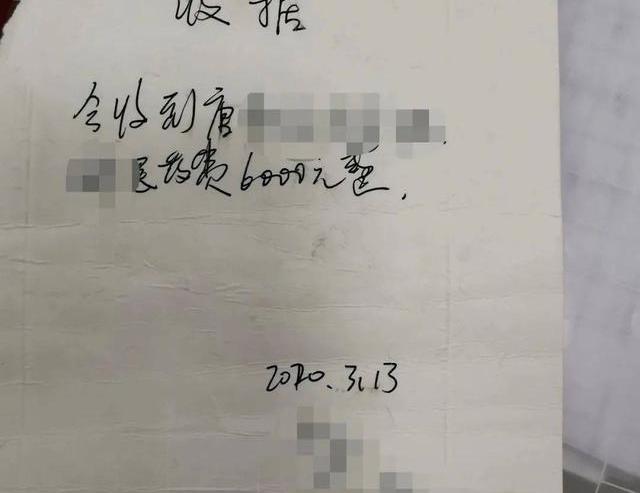 收据
今收到唐
费6000元整.
2020.3.13